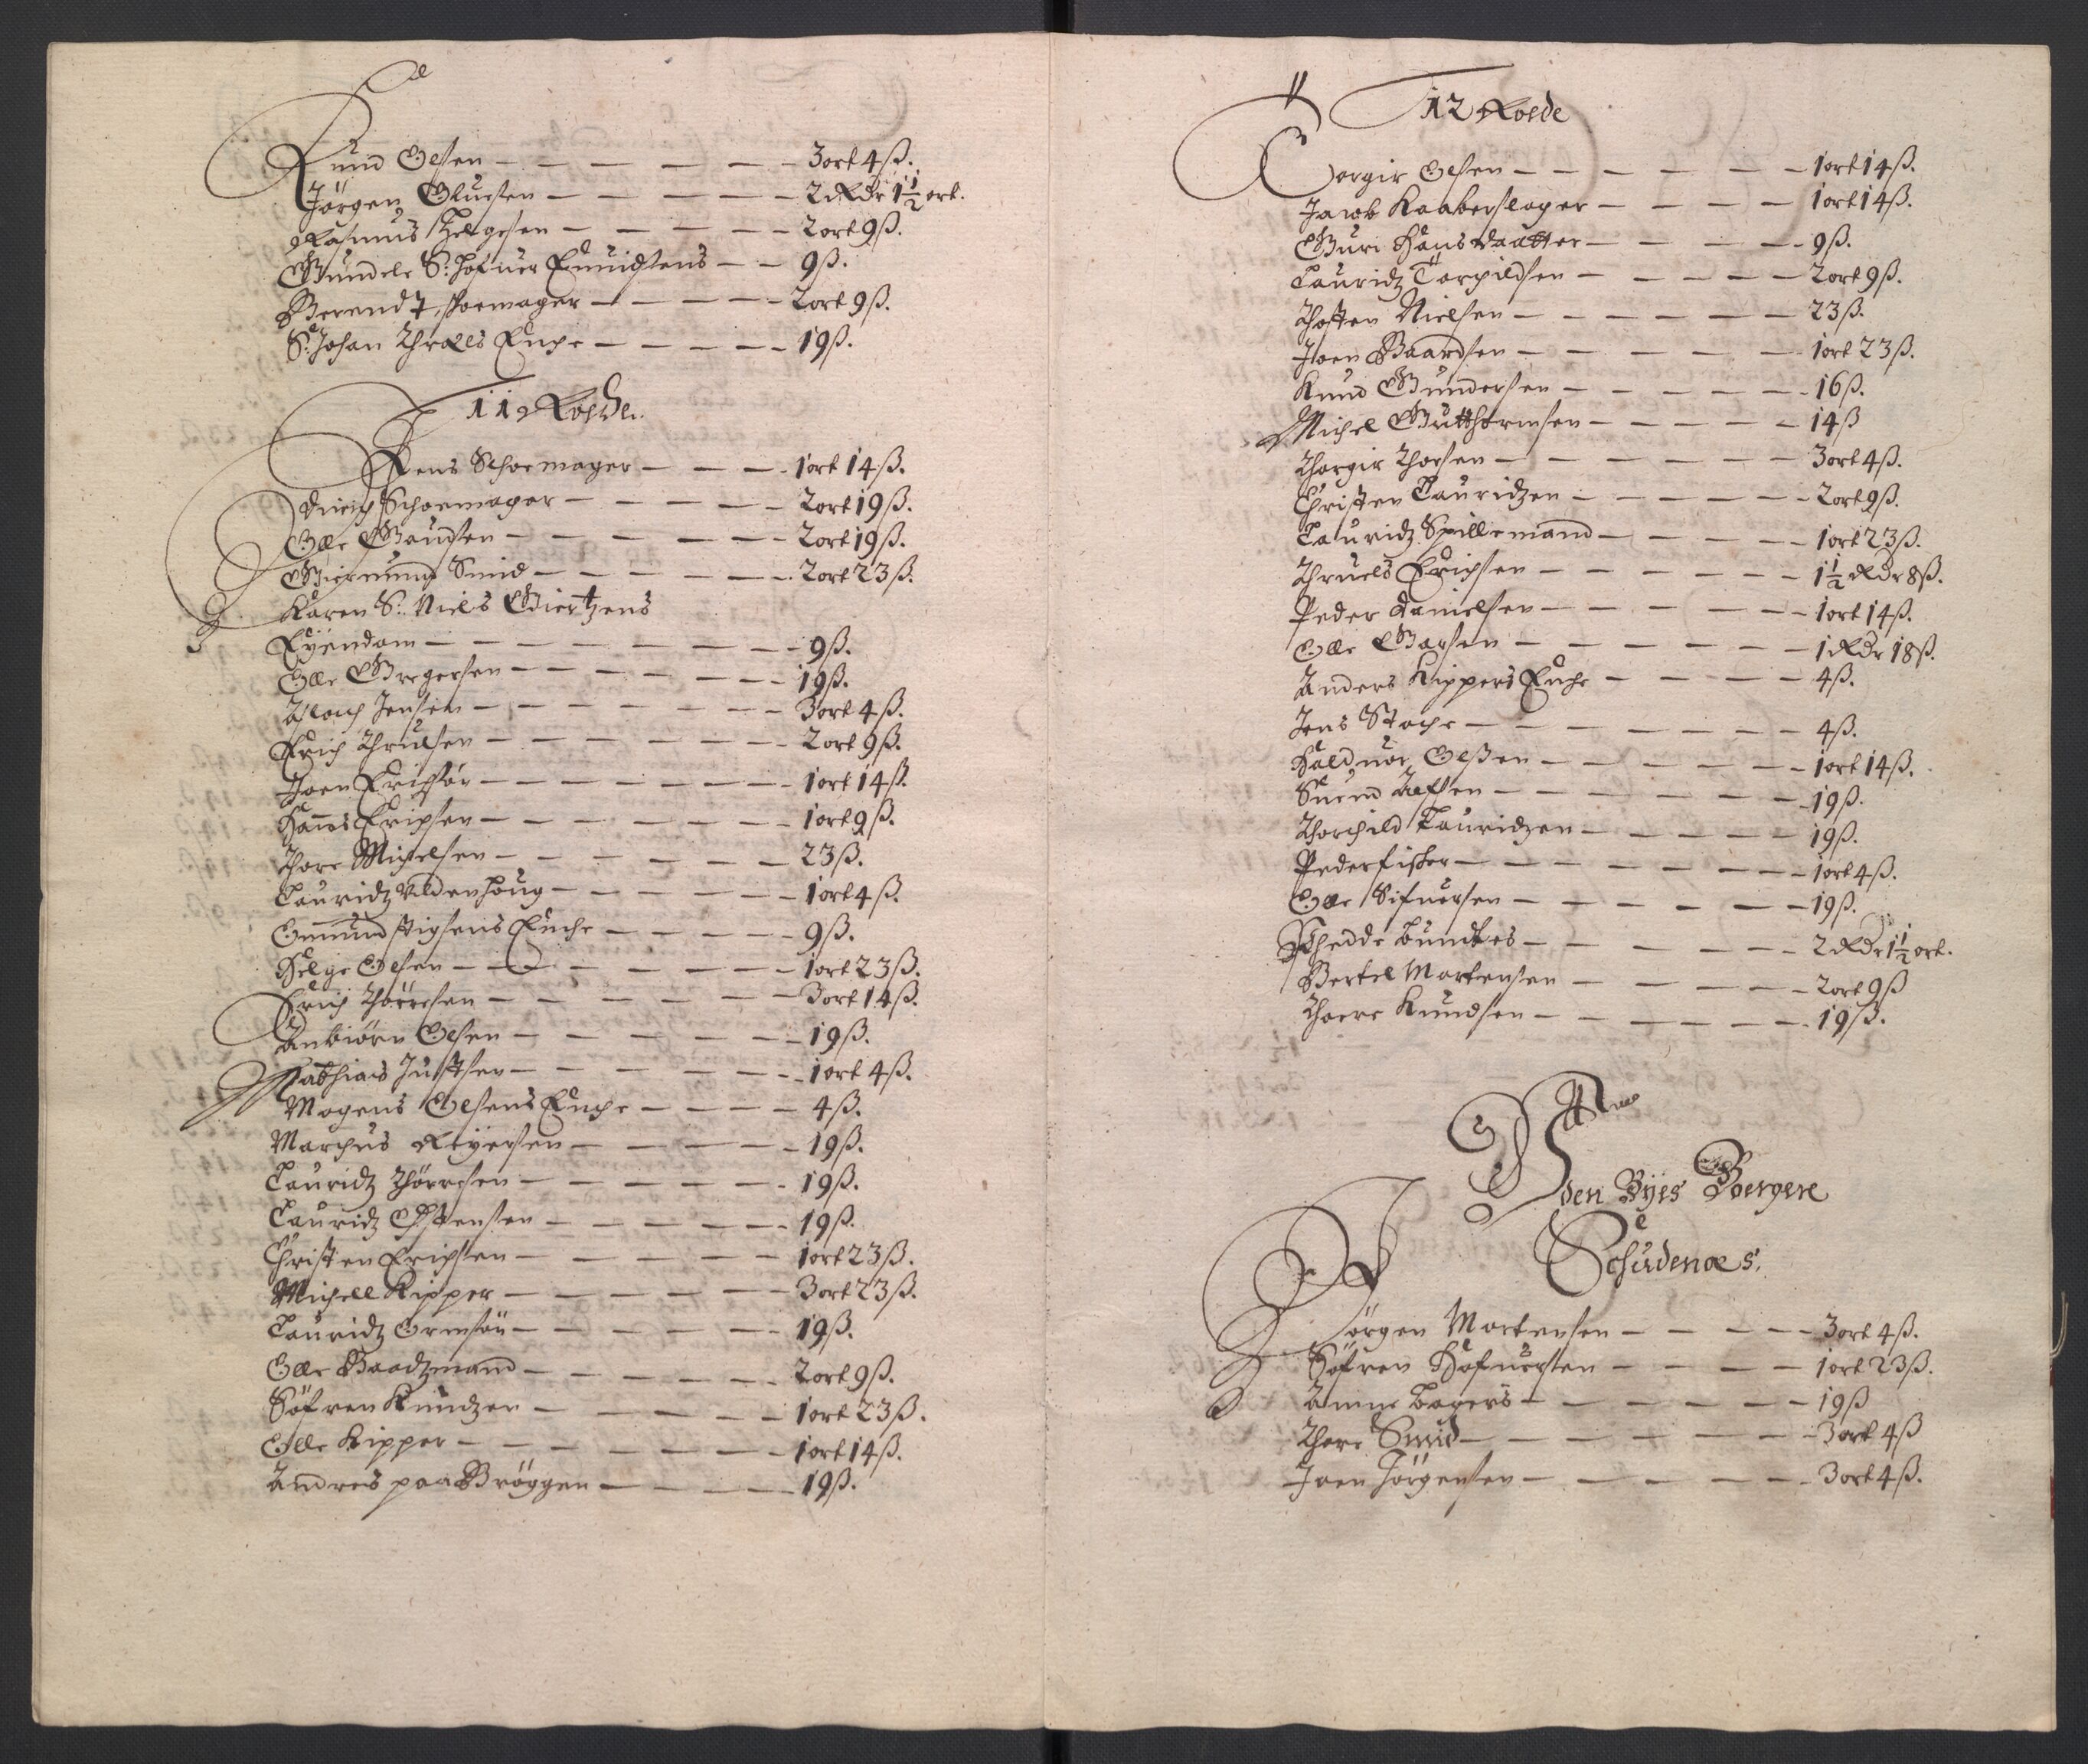 Knud Olsen — — — — — — 3 ort 4 ß.
Jörgen Oluesen — — — — — 2 Rdr 1½ ort.
Rasmus Helgesen — — — — — 2 ort 9 ß.
Gundele S: — — 9 ß.
Berendt schoemager — — — — — 2 ort 9 ß.
S: Johan Thruels Enche — — — — 19 ß.
11 Roede.
Jens Schoemager — — — 1 ort 14 ß.
Dirich Schoemager — — — — — 2 ort 19 ß.
Olle Gaudsen — — — — — — 2 ort 19 ß.
Giermund Smid — — — — — — 2 ort 23 ß.
Karen S: Niels Giertzens
Eyendom — — — — — — — — 9 ß.
Olle Gregersen — — — — — — 19 ß.
Aslach Jensen — — — — — — — 3 ort 4 ß.
Erich Thrulsen — — — — — — — 2 ort 9 ß.
Joen Erichsön — — — — — — — 1 ort 14 ß.
Hanns Erichsen — — — — — — — 1 ort 9 ß.
Thore Michelsen — — — — — — — 23 ß.
Lauridz Uldenhoug — — — — — 1 ort 4 ß.
Ommund stigsens Enche — — — — — 9 ß.
Helge Olsen — — — — — — — 1 ort 23 ß.
Erich Thörresen — — — — — — — 3 ort 14 ß.
Anbiörn Olsen — — — — — — — 19 ß.
Mathias Justsen — — — — — — 1 ort 4 ß.
Mogens Olsens Enche — — — — 4 ß.
Marchus Reyersen — — — — — 19 ß.
Lauridz Thörresen — — — — — — 19 ß.
Lauridz — — — — — — 19 ß.
Christen Erichsen — — — — — — 1 ort 23 ß.
Michell Kipper — — — — — — 3 ort 23 ß.
Lauridz Ormsön — — — — — — 19 ß.
Olle Baadzmand — — — — — — 2 ort 9 ß.
Söfren Knudzen — — — — — — 1 ort 23 ß.
Olle Kipper — — — — — — — 1 ort 14 ß.
Andres paa Bröggen — — — — — 19 ß.
12 Roede
Torgir Olsen — — — — — — 1 ort 14 ß.
Jacob Kaaberslager — — — — 1 ort 14 ß.
Guri Hansdaatter — — — — — 9 ß.
Lauridz Torchildsen — — — — — 2 ort 9 ß.
Thosten Nielsen — — — — — — 23 ß.
Joen Baardsen — — — — — — 1 ort 23 ß.
Knud Gundersen — — — — — — 16 ß.
Michel Gutthormsen — — — — — 14 ß
Thorgir Thorsen — — — — — — 3 ort 4 ß.
Christen Lauridzen — — — — — — 2 ort 9 ß.
Lauridz Spillemand — — — — — 1 ort 23 ß.
Thruels Erichsen — — — — — — 1½ Rdr 8 ß.
Peder Danielsen — — — — — — 1 ort 14 ß.
Olle — — — — — — 1 Rdr 18 ß.
Anders Kippers Enche — — — — 4 ß.
Jens Stache — — — — — — — 4 ß.
Halduor Olssen — — — — — — 1 ort 14 ß.
Suend — — — — — — — 19 ß.
Thorchild Lauridzen — — — — — 19 ß.
Peder fisker — — — — — — — 1 ort 4 ß.
Olle Sifuersen — — — — — — 19 ß.
Fhedde Bundtes — — — — — — 2 Rdr 1½ ort.
Bertel Mortensen — — — — — 2 ort 9 ß
Thoere Knudsen — — — — — — 19 ß.
Aff
den Byes Boergere
J Schudenæs.
Jörgen Mortensen — — — — — 3 ort 4 ß.
Söfren Hofuersen — — — — — 1 ort 23 ß.
Anne Bagers — — — — — — — 19 ß
Thore Smid — — — — — — — 3 ort 4 ß
Joen Jörgensen — — — — — — 3 ort 4 ß.